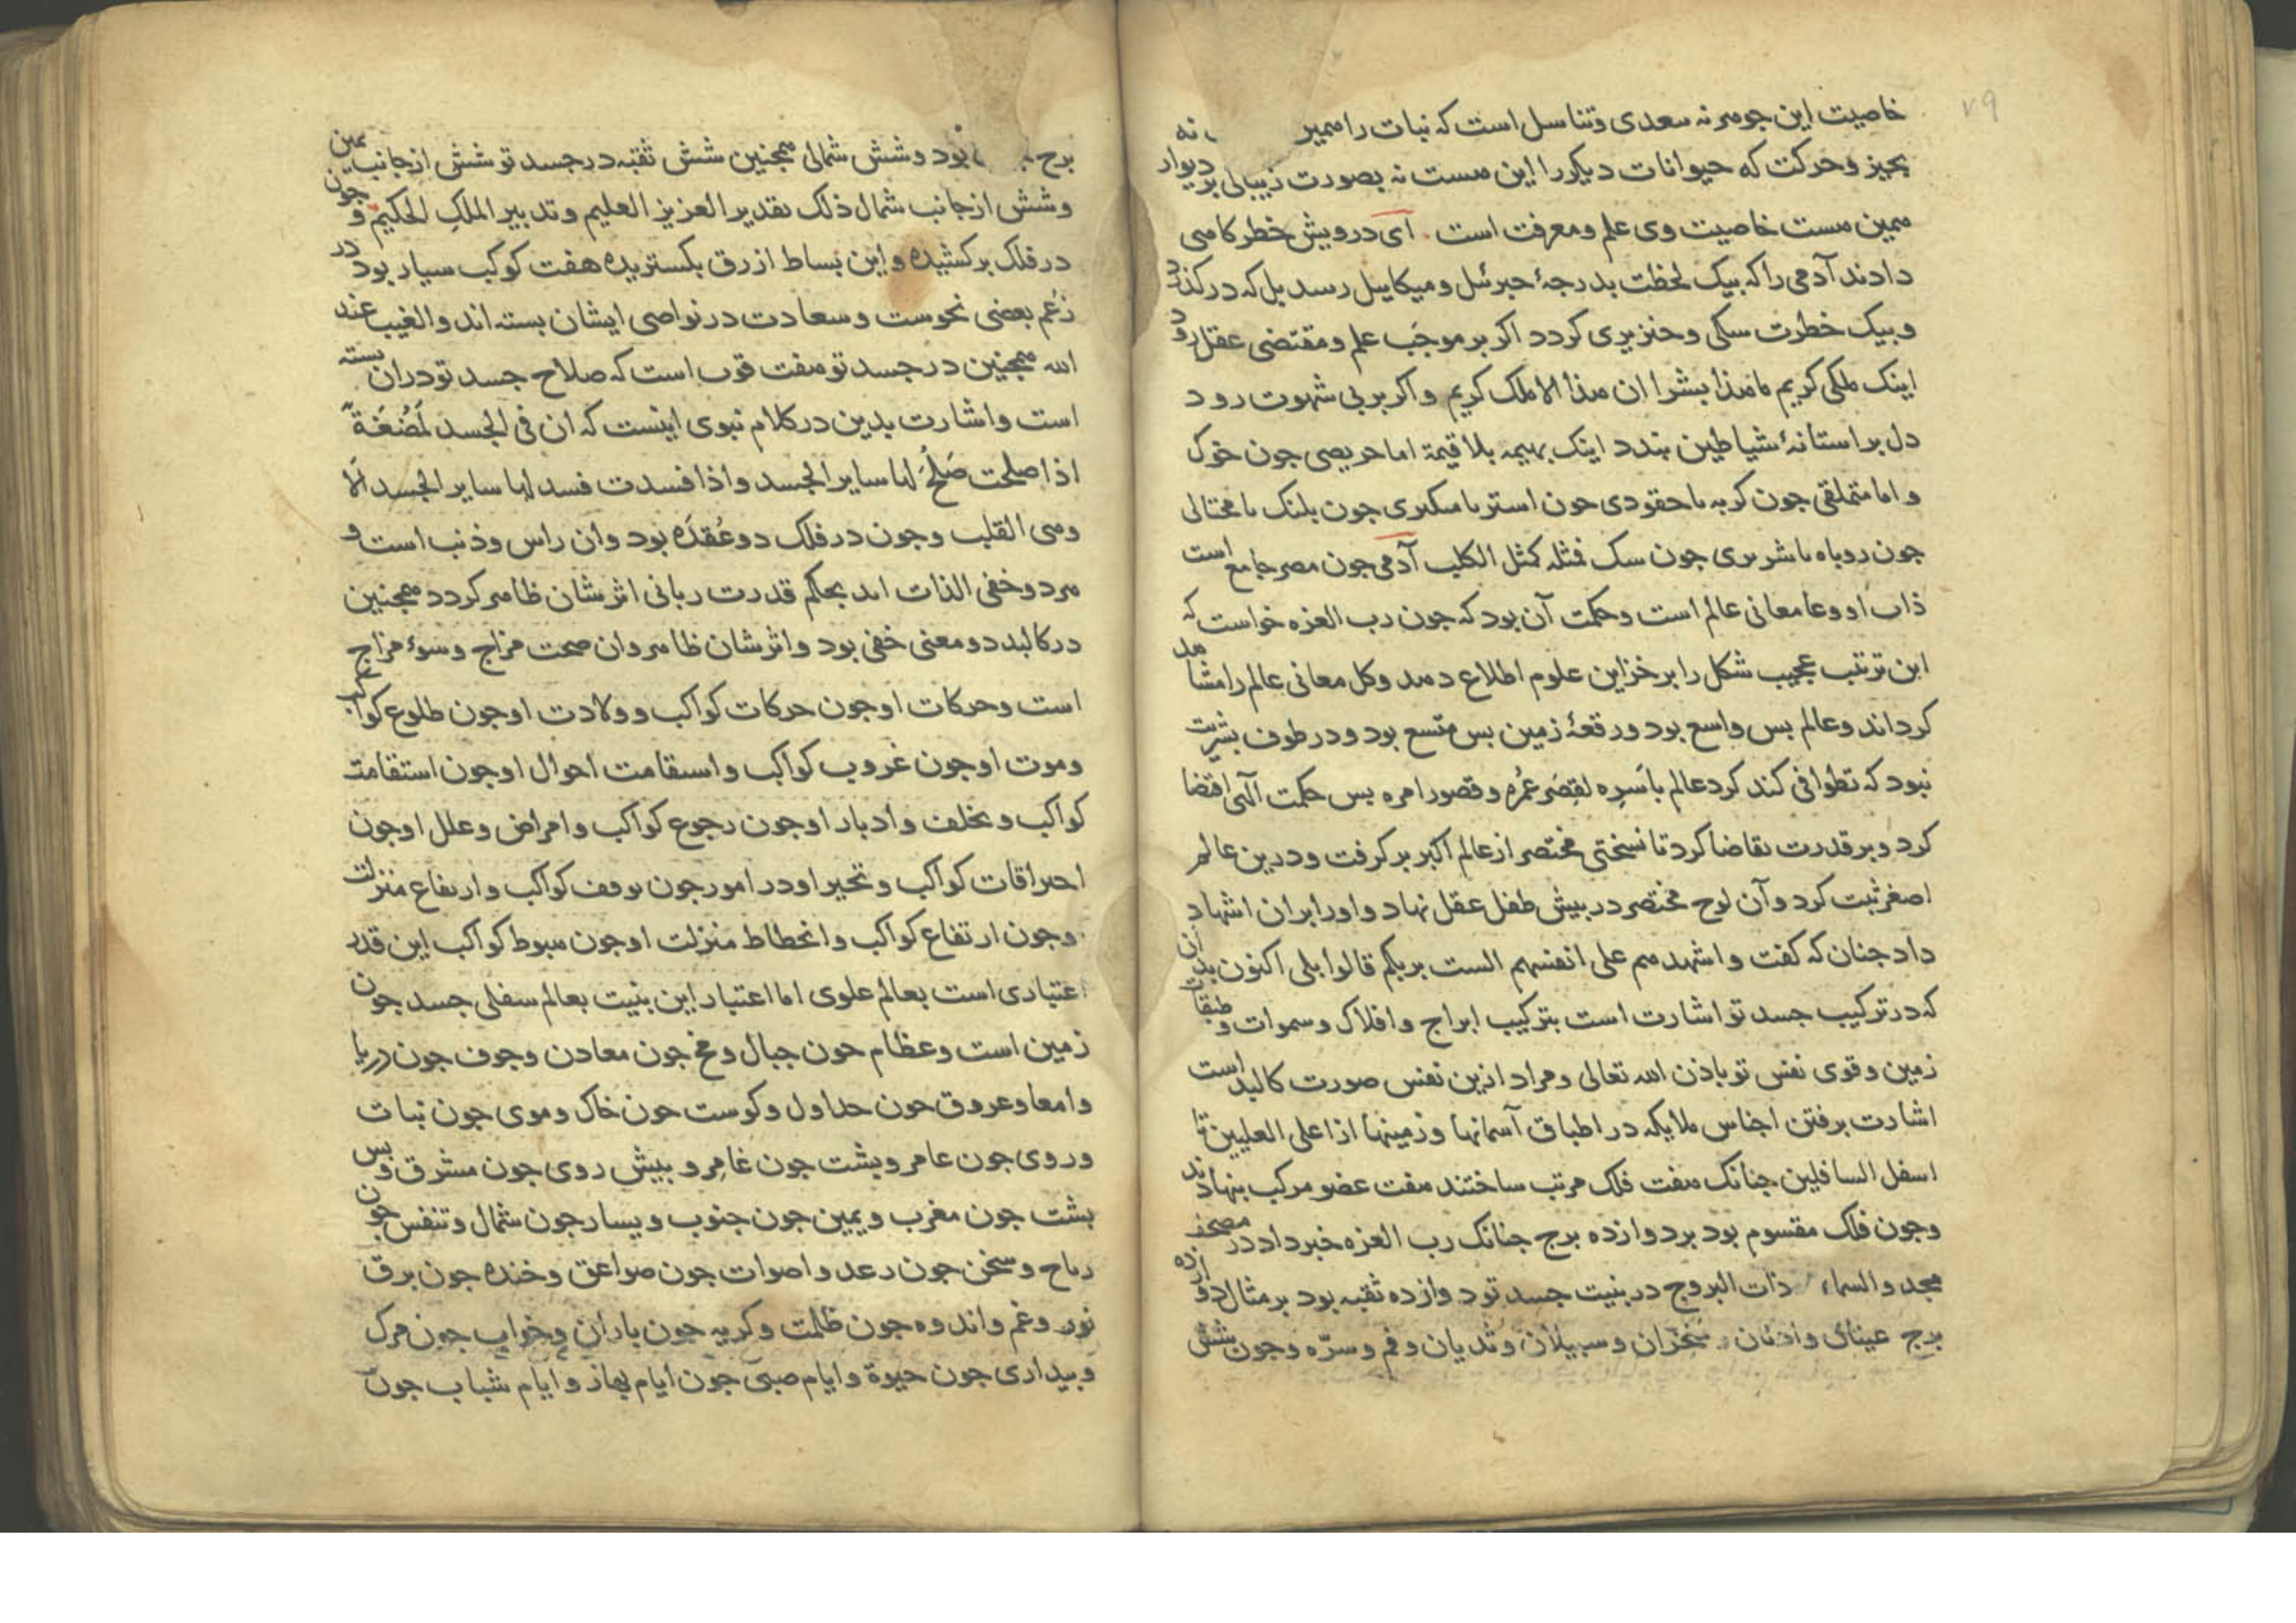 ۷۹
خاصیت این جوهر نه تعدی و تناسل است که نبات را همیر نه
بحیز و حرکت که حیوانات دیکر را این هست نه بصورت زیبا لی بر دیوار
همین هست خاصیت وی علم و معرفت است . ای درویش خطر کامی
دادند آدمی را که بیک لحظت بدرجهٔ جبرئل و میکاییل رسد بل که در کذرد
و بیک خطرت سکی و خنزیری کردد اکر بر موجب علم و مقتضی عقل رود
اینک ملکی کریم ما هذا بشرا ان هذا الا ملک کریم و اکر بر بی شهوت رود
دل بر استانهٔ شیاطین بندد اینک بهیمه بلا قیمة اما حریصی جون خوک
و اما متملقی جون کربه یا حقودی جون استر یا متکبری جون بلنک یا محتالی
جون روباه یا شریری جون سک فمثله کمثل الکلب آدمی جون مصر جامع است
ذات او وعا معانی عالم است و حکمت آن بود که جون رب العزه خواست که
این ترتیب عجیب شکل را بر خزاین علوم اطلاع دهد و کل معانی عالم را مشاهد
کرداند و عالم بس واسع بود و رقعهٔ زمین بس متسع بود و در طوف بشریت
نبود که تطوافی کند کرد عالم باسره لقصر عمره و قصور امره بس حکمت آلهی اقتضا
کرد و بر قدرت تقاضا کرد تا نسختی مختصر از عالم اکبر بر کرفت و درین عالم
اصغر ثبت کرد و آن لوح مختصر در بیش طفل عقل نهاد و او را بران اشهاد
داد جنان که کفت و اشهدهم علی انفسهم الست بربکم قالوا بلی اکنون بدان
که در ترکیب جسد تو اشارت است بترکیب ابراج و افلاک و سموات و طبقات
زمین و قوی نفس تو باذن الله تعالی و مراد ازین نفس صورت کالبد است
اشارت برفتن اجناس ملایکه در اطباق آسمانها و زمینها از اعلی العلیین تا
اسفل السافلین جنانک هفت فلک مرتب ساختند هفت عضو مرکب بنهادند
و جون فلک مقسوم بود بر دوازده برج جنانک رب العزه خبر داد در مصحف
مجد والسماء ذات البروج در بنیت جسد تو دوازده ثقبه بود بر مثال دوازده
برج عینان و اذنان و منخران و سبیلان و ثدیان و فم و سره و جون شش
برج بود و شش شمالی همجنین شش ثقبه در جسد تو شش از جانب یمین
و شش از جانب شمال ذلک تقدیر العزیز العلیم و تدبیر الملک الحکیم و جون
در فلک بر کشیده و این بساط ازرق بکستریده هفت کوکب سیار بود در
زعم بعضی نحوست و سعادت در نواصی ایشان بسته اند و الغیب عند
الله همجنین در جسد تو هفت قوت است که صلاح جسد تو در ان بسته
است و اشارت بدین در کلام نبوی اینست که ان فی الجسد لمضغة
اذا صلحت صلح لها سایر الجسد و اذا فسدت فسد لها سایر الجسد الا
و هی القلب و جون در فلک دو عقده بود و ان راس و ذنب است و
هر دو خفی الذات اند بحکم قدرت ربانی اثرشان ظاهر کردد همجنین
در کالبد دو معنی خفی بود و اثرشان ظاهر و ان صحت مزاج و سوء مزاج
است و حرکات او جون حرکات کواکب و ولادت او جون طلوع کواکب
و موت او جون غروب کواکب و استقامت احوال او جون استقامت
کواکب و تخلف و ادبار او جون رجوع کواکب و امراض و علل او جون
احتراقات کواکب و تحیر او در امور جون توقف کواکب و ارتفاع منزلت
و جون ارتفاع کواکب و انحطاط منزلت او جون هبوط کواکب این قدر
اعتباری است بعالم علوی اما اعتبار این بنیت بعالم سفلی جسد جون
زمین است و عظام جون جبال و مخ جون معادن و جوف جون دریا
و امعا و عروق جون جداول و کوست جون خاک و موی جون نبات
و روی جون عامر و بشت جون غامر و بیش روی جون مشرق و بس
بشت جون مغرب و یمین جون جنوب و یسار جون شمال و تنفس جون
ریاح و سخن جون رعد و اصوات جون صواعق و خنده جون برق
نور و غم و اندوه جون ظلمت و کریه جون باران و خواب جون مرک
و بیداری جون حیوة و ایام صبی جون ایام بهار و ایام شباب جون